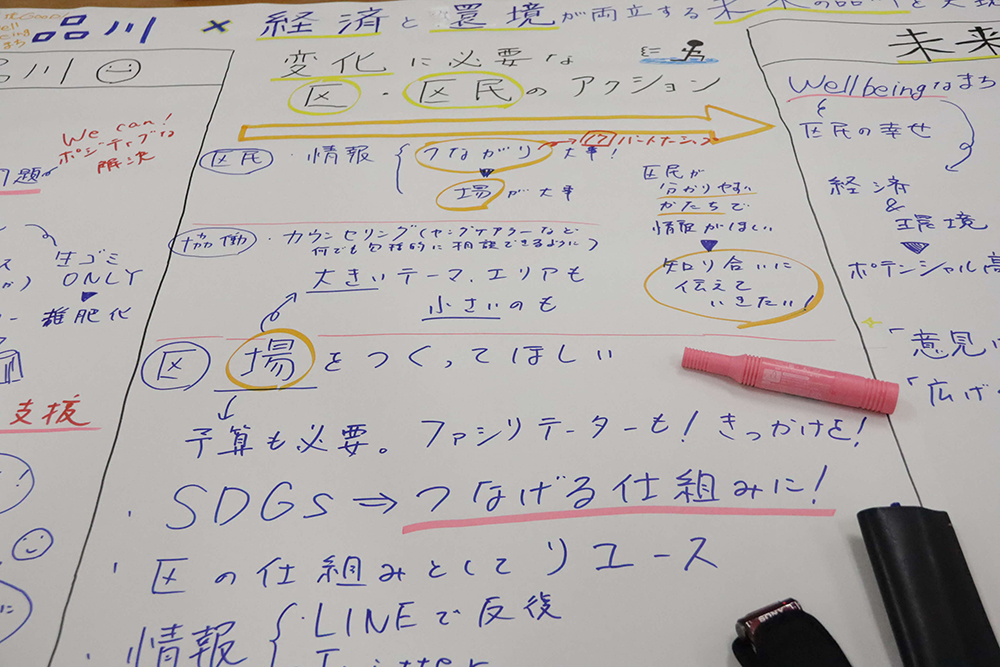 品川 × 経済と環境が両立する未来の品川を
品川
変化に必要な
区・区民のアクション
We can!
ポジティブな
解決
題
生ゴミ
ONLY
堆肥化
支援
区民 ・情報 つながり 大事!
17 パートナーシップ
場が大事
区民が
分かりやすい
かたちで
情報がほしい
知り合いに
伝えて
いきたい!
協働 ・カウンセリング(ヤングケアラーなど
何でも包括的に相談できるように)
大きいテーマ、エリアも
小さいのも
区 場をつくってほしい
予算も必要。ファシリテーターも!きっかけを!
・SDGs⇒つなげる仕組みに!
・区の仕組みとしてリユース
・情報 ・LINEで反復
未来
Wellbeingなまち
区民の幸せ
経済
&
環境
ポテンシャル高
「意見
「広げ